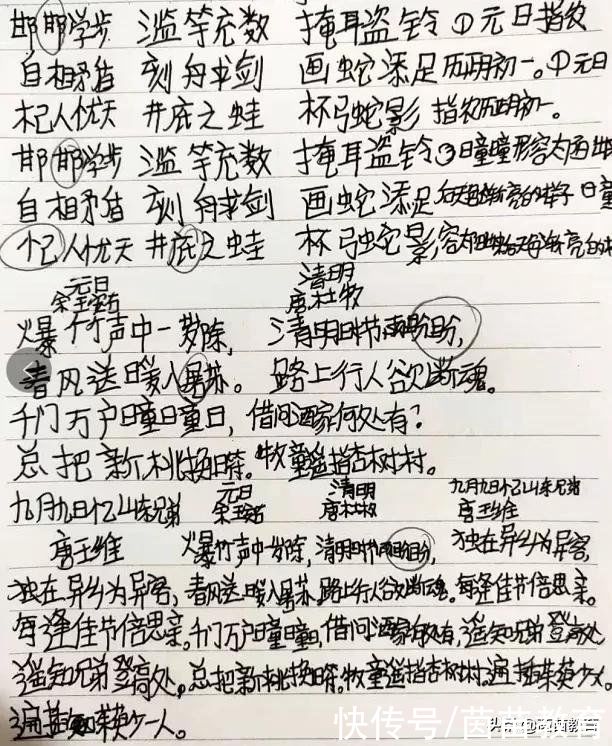 邯郸学步 滥竽充数 掩耳盗铃 ①元日指农
自相矛盾 刻舟求剑 画蛇添足 历正月初一。①元日
杞人忧天 井底之蛙 杯弓蛇影 指农历正月初一。
邯郸学步 滥竽充数 掩耳盗铃 ③日曈曈形容太
自相矛盾 刻舟求剑 画蛇添足
杞人忧天 井底之蛙 杯弓蛇影
元日 清明
宋王安石 唐杜牧
爆竹声中一岁除, 清明时节雨纷纷,
春风送暖入屠苏。 路上行人欲断魂。
千门万户曈曈日, 借问酒家何处有?
总把新桃换旧符。 牧童遥指杏树村。
九月九日忆山东兄弟 元日 清明 九月九日忆山东兄弟
宋王安石 唐杜牧 唐王维
唐王维 爆竹声中一岁除, 清明时节雨纷纷, 独在异乡为异客,
独在异乡为异客, 春风送暖入屠苏 路上行人欲断魂。 每逢佳节倍思亲。
每逢佳节倍思亲。 千门万户曈曈日, 借问酒家何处有, 遥知兄弟登高处
遥知兄弟登高处, 总把新桃换旧符。 牧童遥指杏树村。 遍插茱萸少一人。
遍插茱萸少一人。
快传号/茵茵教育